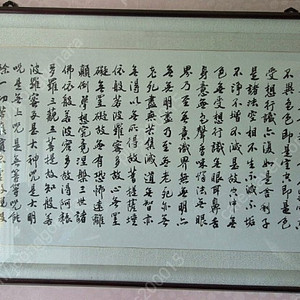 不異色色即是空空即是色
受想行識亦復如是舍利子
是諸法空相不生不滅不垢
不淨不增不減是故空中無
色無受想行識無眼耳鼻舌
身意無色聲香味觸法無眼
界乃至無意識界無無明亦
無無明盡乃至無老死亦無
老死盡無苦集滅道無智亦
無得以無所得故菩提薩埵
依般若波羅蜜多故心無罣
礙無罣礙故無有恐怖遠離
顛倒夢想究竟涅槃三世諸
佛依般若波羅蜜多故得阿耨
多羅三藐三菩提故知般若
波羅蜜多是大神咒是大明
咒是無上咒是無等等咒能
除一切苦